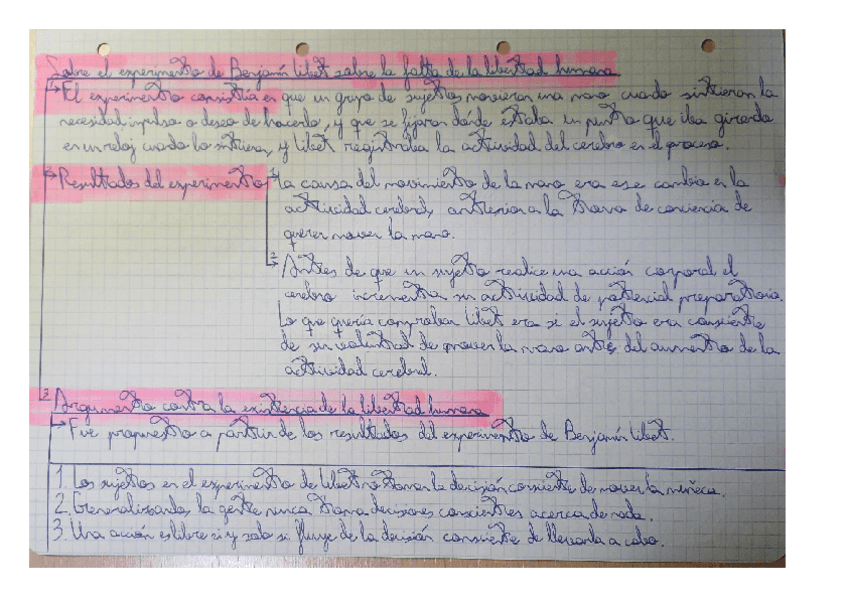 Sobre el experimento de Benjamín Libet sobre la falta de la libertad humana
El experimento consistía en que un grupo de sujetos movieran una mano cuando sintieran la
necesidad, impulso o deseo de hacerlo, y que se fijaran dónde estaba un punto que iba girando
en un reloj cuando lo sintieran, y Libet registraba la actividad del cerebro en el proceso.
Resultados del experimento
1 La causa del movimiento de la mano era ese cambio en la
actividad cerebral, anterior a la toma de conciencia de
querer mover la mano.
2 Antes de que un sujeto realice una acción corporal el
cerebro incrementa su actividad de potencial preparatorio.
Lo que quería comprobar Libet era si el sujeto era consciente
de su voluntad de mover la mano antes del aumento de la
actividad cerebral.
2 Argumento contra la existencia de la libertad humana
Fue propuesto a partir de los resultados del experimento de Benjamín Libet.
1. Los sujetos en el experimento de Libet no toman la decisión consciente de mover la muñeca.
2. Generalizando, la gente nunca toma decisiones conscientes acerca de nada.
3. Una acción es libre si y solo si fluye de la decisión consciente de llevarla a cabo.